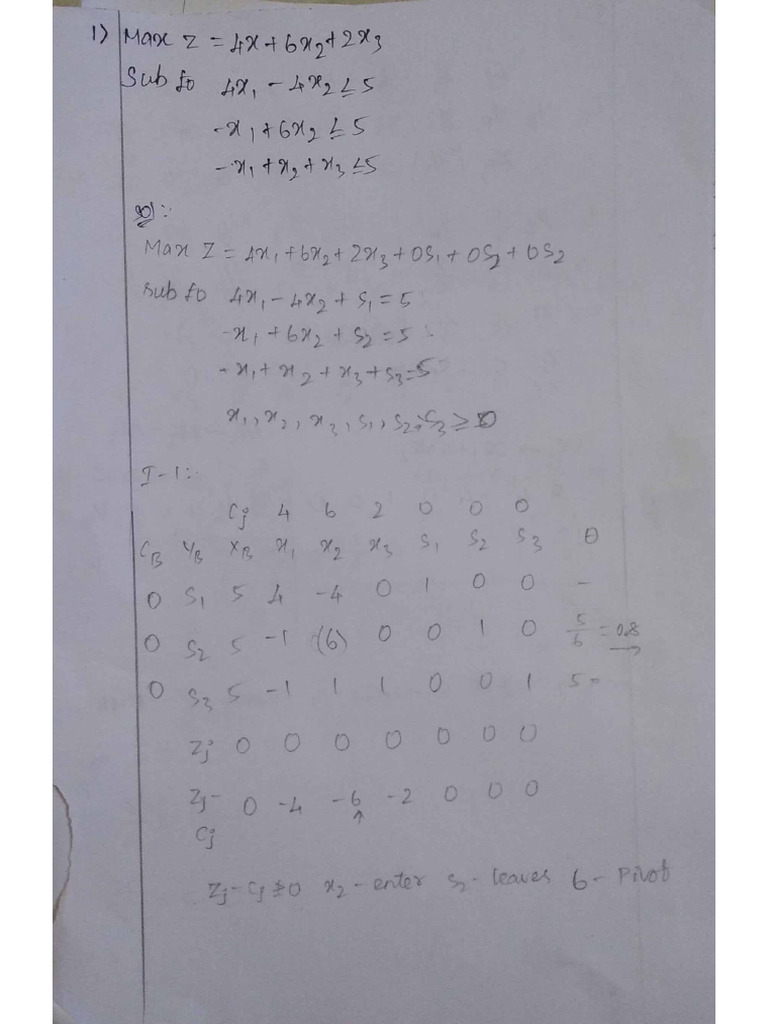 1) Max z = 4x + 6x₂ + 2x₃
Sub to 4x₁ - 4x₂ ≤ 5
-x₁ + 6x₂ ≤ 5
-x₁ + x₂ + x₃ ≤ 5
Sol:
Max Z = 4x₁ + 6x₂ + 2x₃ + 0S₁ + 0S₂ + 0S₂
Sub to 4x₁ - 4x₂ + S₁ = 5
-x₁ + 6x₂ + S₂ = 5
-x₁ + x₂ + x₃ + S₃ = 5
x₁, x₂, x₃, S₁, S₂, S₃ ≥ 0
I-1:
Cj 4 6 2 0 0 0
C_B Y_B X_B x₁ x₂ x₃ S₁ S₂ S₃ θ
0 S₁ 5 4 -4 0 1 0 0 -
0 S₂ 5 -1 (6) 0 0 1 0 5/6 = 0.8 →
0 S₃ 5 -1 1 1 0 0 1 5
Zj 0 0 0 0 0 0 0
Zj- 0 -4 -6 -2 0 0 0
Cj ↑
Zj - Cj ≱ 0 x₂ - enter S₂ - leaves 6 - Pivot